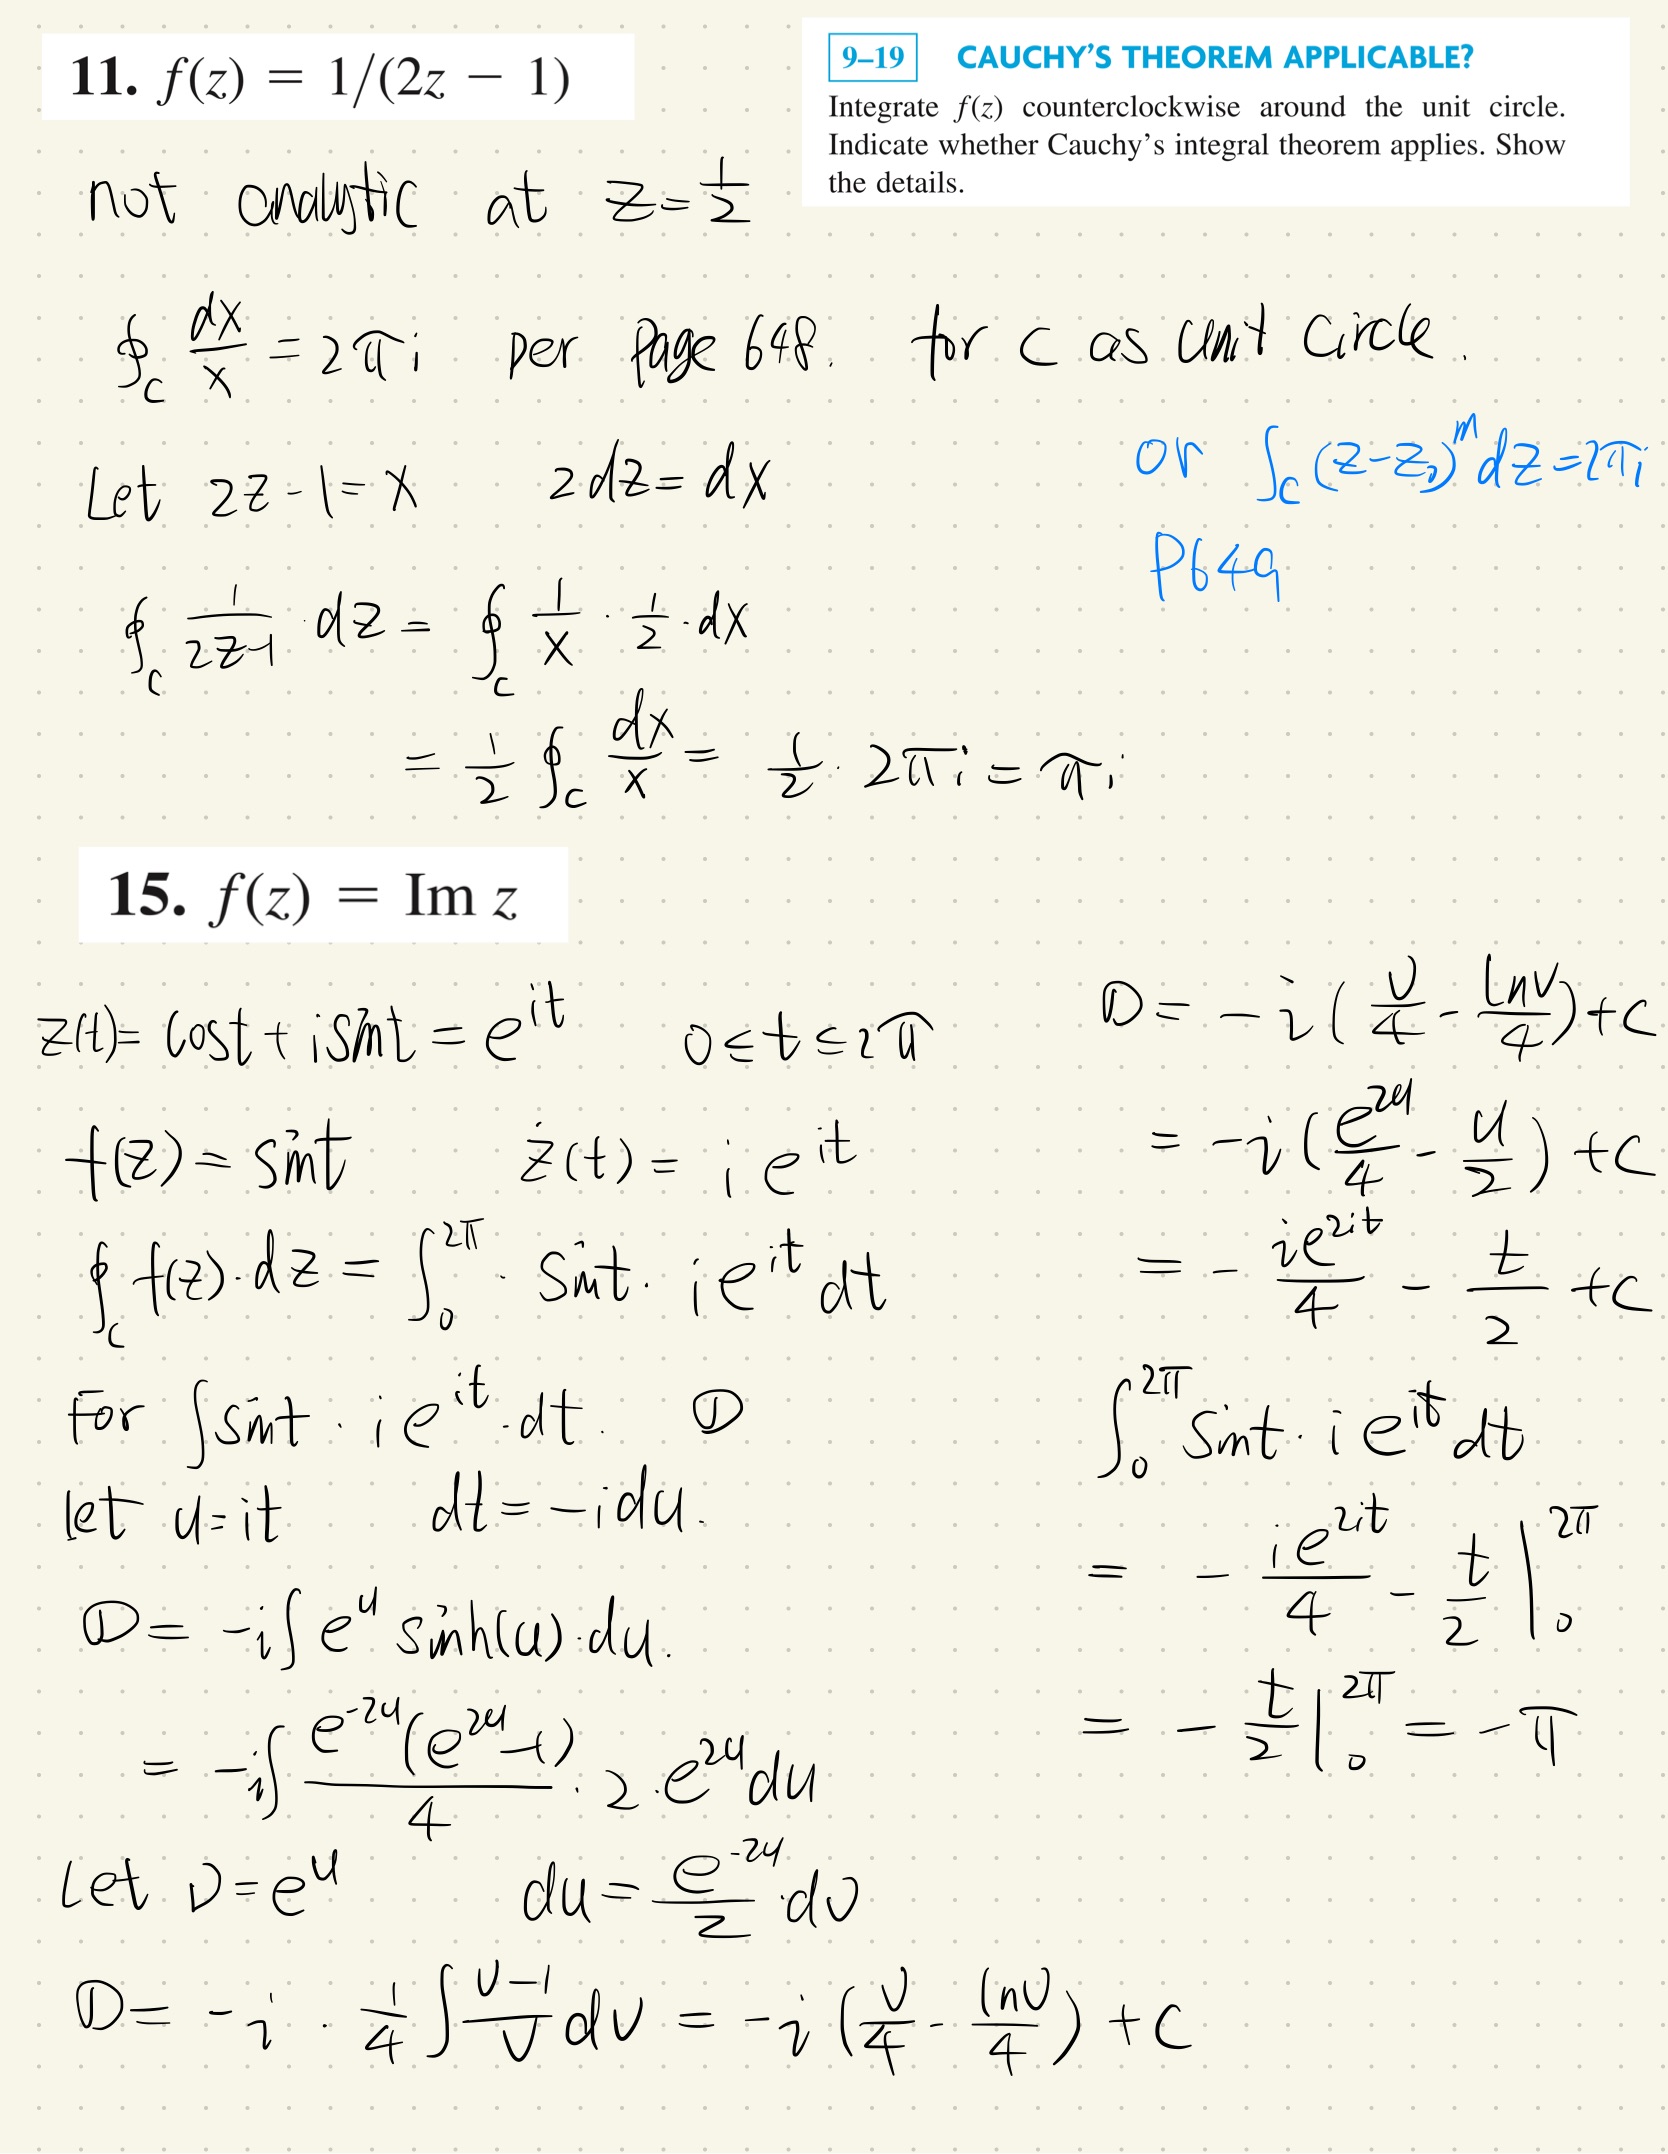 11. f(z) = 1/(2z − 1)
9–19 CAUCHY'S THEOREM APPLICABLE?
Integrate f(z) counterclockwise around the unit circle.
Indicate whether Cauchy's integral theorem applies. Show
the details.
not analytic at z = 1/2
∮_C dx/x = 2πi per Page 648. for C as unit circle.
or ∫_C (z-z₀)^m dz = 2πi
P649
Let 2z-1 = x 2dz = dx
∮_C 1/(2z-1) · dz = ∮_C 1/x · 1/2 · dx
= 1/2 ∮_C dx/x = 1/2 · 2πi = πi
15. f(z) = Im z
z(t) = cost + isint = e^{it} 0 ≤ t ≤ 2π
f(z) = sint ż(t) = i e^{it}
∮_C f(z)·dz = ∫_0^{2π} · sint · i e^{it} dt
For ∫sint · i e^{it} · dt. ①
let u = it dt = -i du.
① = -i∫ e^u sinh(u)·du.
= -i∫ e^{-2u}(e^{2u}-1)/4 · 2 · e^{2u} du
Let v = e^u du = e^{-2u}/2 · dv
① = -i · 1/4 ∫ (v-1)/v dv = -i (v/4 - lnv/4) + C
① = -i (v/4 - lnv/4) + C
= -i (e^{2u}/4 - u/2) + C
= - ie^{2it}/4 - t/2 + C
∫_0^{2π} sint · i e^{it} dt
= - ie^{2it}/4 - t/2 |_0^{2π}
= - t/2 |_0^{2π} = -π